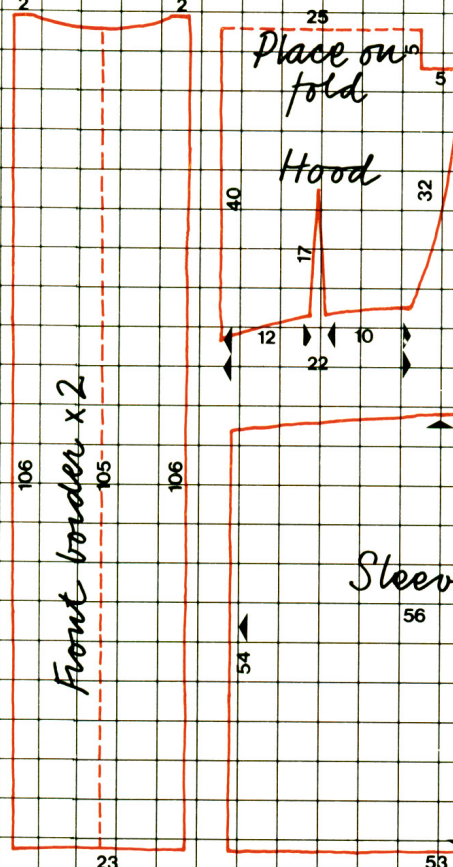 2
2
25
Place on
fold
5
5
Hood
40
32
17
12
10
22
Front border x 2
106
105
106
Sleev
56
54
23
53